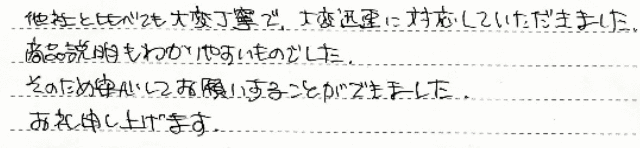 他社と比べても大変丁寧で、大変迅速に対応していただきました。
商品説明もわかりやすいものでした。
そのため安心してお願いすることができました。
お礼申し上げます。